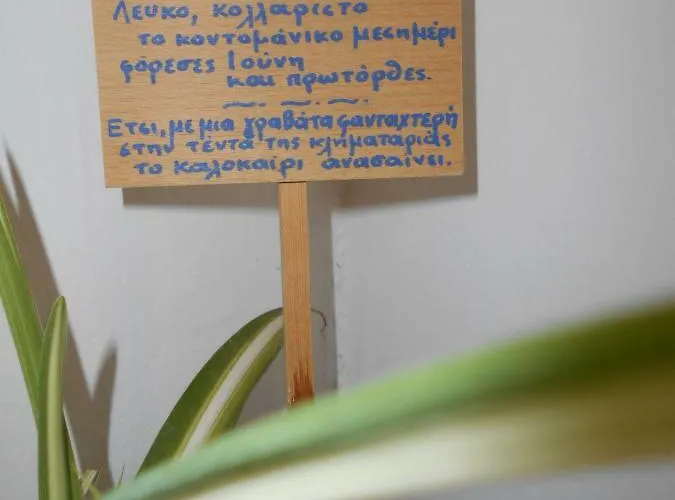 Λευκο, κολλαριστο
το κοντομάνικο μεσημέρι
φόρεσες Ιούνη
και πρωτόρθες.
Ετσι, με μια γραβάτα φανταχτερή
στην τέντα της κληματαριάς
το καλοκαίρι ανασαίνει.